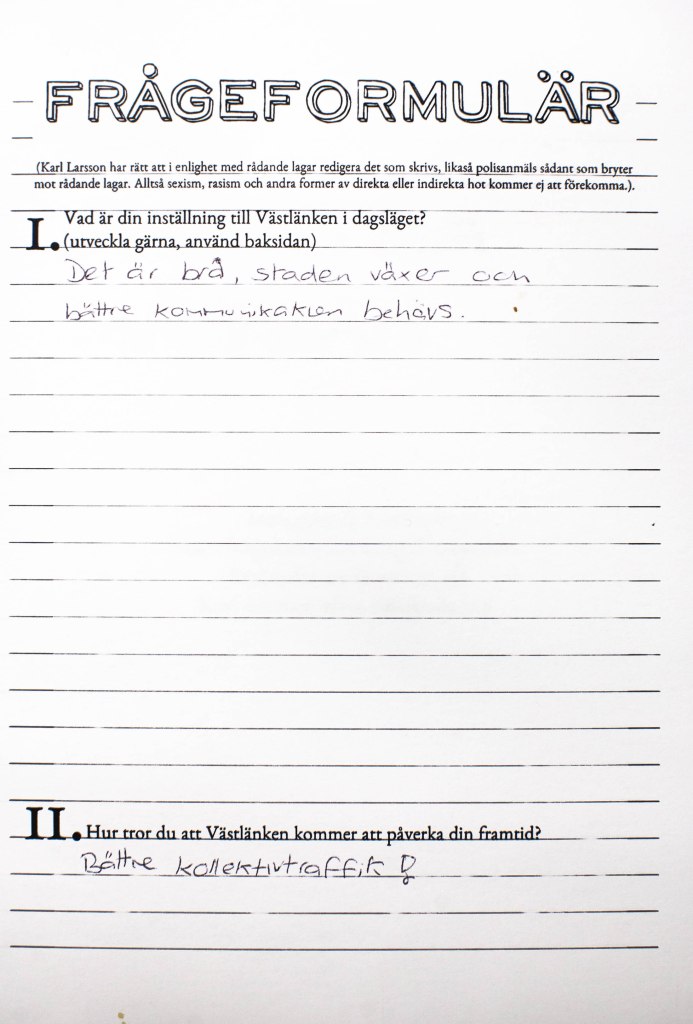 FRÅGEFORMULÄR
(Karl Larsson har rätt att i enlighet med rådande lagar redigera det som skrivs, likaså polisanmäls sådant som bryter
mot rådande lagar. Alltså sexism, rasism och andra former av direkta eller indirekta hot kommer ej att förekomma.).
I. Vad är din inställning till Västlänken i dagsläget?
(utveckla gärna, använd baksidan)
Det är brå, staden växer och
bättre kommunikaktion behövs.
II. Hur tror du att Västlänken kommer att påverka din framtid?
Bättre kollektivtraffik !